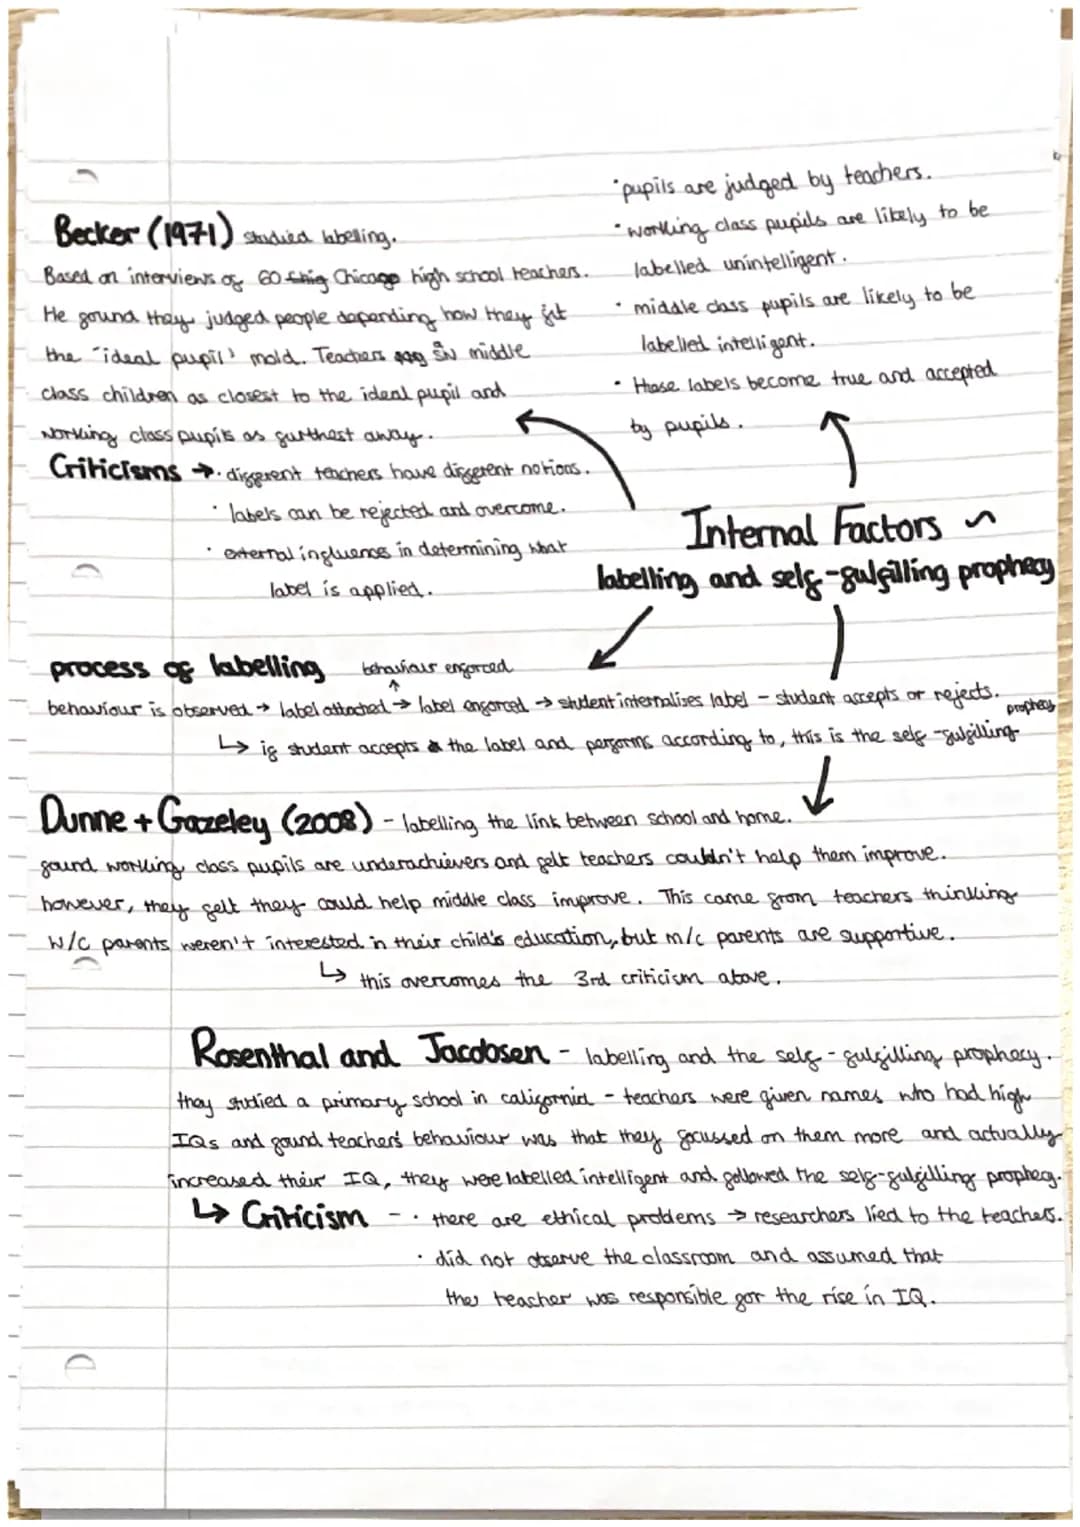 • pupils are judged by teachers.
• working class pupils are likely to be
labelled unintelligent.
• middle class pupils are likely to be
labelled intelligent.
• these labels become true and accepted
by pupils.
Becker (1971) studied labelling.
Based on interviews of 60 Chicago high school teachers.
He found they judged people depending how they fit
the "ideal pupil' mold. Teachers middle
class children as closest to the ideal pupil and
working class pupils as furthest away.
Criticisms → • different teachers have different notions.
• labels can be rejected and overcome.
• external influences in determining what
label is applied.
Internal Factors ~
labelling and self-fulfilling prophecy
process of labelling
behaviour enforced
↑
behaviour is observed → label attached → label enforced → student internalises label - student accepts or rejects.
↳ if student accepts the label and performs according to, this is the self-fulfilling prophecy
Dunne + Gazeley (2008) - labelling the link between school and home.
found working class pupils are underachievers and felt teachers couldn't help them improve.
however, they felt they could help middle class improve. This came from teachers thinking
W/C parents weren't interested in their child's education, but m/c parents are supportive.
↳ this overcomes the 3rd criticism above.
Rosenthal and Jacobsen - labelling and the self-fulfilling prophecy.
they studied a primary school in california - teachers were given names who had high
IQs and found teachers' behaviour was that they focussed on them more and actually
increased their IQ, they were labelled intelligent and followed the self-fulfilling prophecy.
↳ Criticism - • there are ethical problems → researchers lied to the teachers.
• did not observe the classroom and assumed that
the teacher was responsible for the rise in IQ.